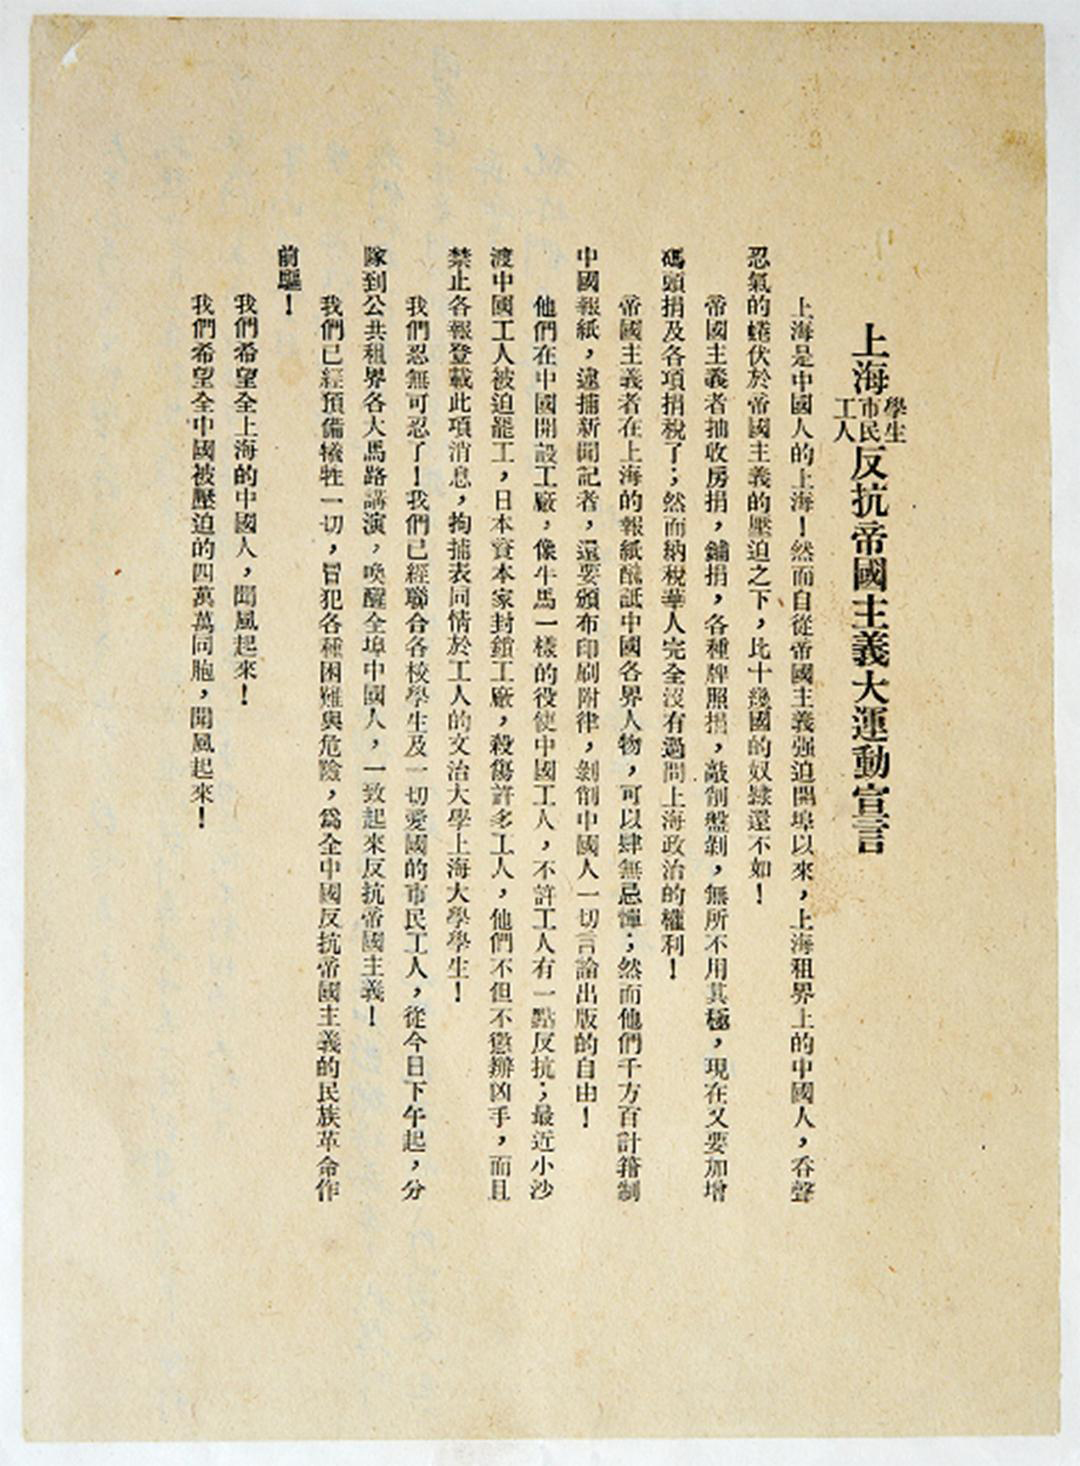 上海學生市民工人反抗帝國主義大運動宣言
上海是中國人的上海！然而自從帝國主義强迫開埠以來，上海租界上的中國人，吞聲
忍氣的蜷伏於帝國主義的壓迫之下，比十幾國的奴隸還不如！
帝國主義者抽收房捐，鋪捐，各種牌照捐，敲削盤剝，無所不用其極，現在又要加增
碼頭捐及各項捐稅了；然而納稅華人完全沒有過問上海政治的權利！
帝國主義者在上海的報紙醜詆中國各界人物，可以肆無忌憚；然而他們千方百計箝制
中國報紙，逮捕新聞記者，還要頒布印刷附律，剝削中國人一切言論出版的自由！
他們在中國開設工廠，像牛馬一樣的役使中國工人，不許工人有一點反抗；最近小沙
渡中國工人被迫罷工，日本資本家封鎖工廠，殺傷許多工人，他們不但不懲辦凶手，而且
禁止各報登載此項消息，拘捕表同情於工人的文治大學上海大學學生！
我們忍無可忍了！我們已經聯合各校學生及一切愛國的市民工人，從今日下午起，分
隊到公共租界各大馬路講演，喚醒全埠中國人，一致起來反抗帝國主義！
我們已經預備犧牲一切，冒犯各種困難與危險，爲全中國反抗帝國主義的民族革命作
前驅！
我們希望全上海的中國人，聞風起來！
我們希望全中國被壓迫的四萬萬同胞，聞風起來！